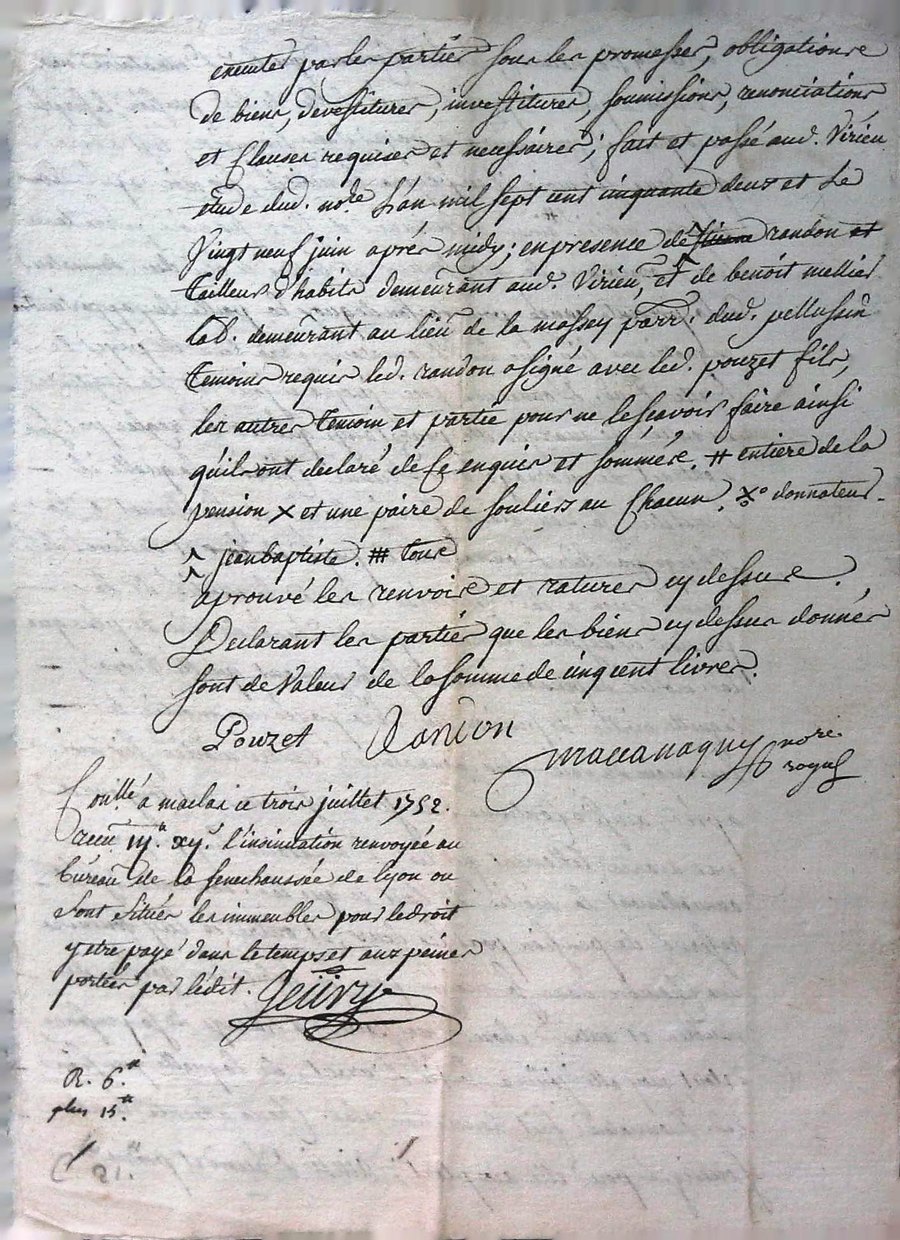 executer par les parties sous les promesses, obligations
de biens, devestitures, investitures, soumissions, renonciations
et Clauses requises et necessaires; fait et passé aud. Virieu
etude dud. nore. L'an mil sept cent cinquante deux et Le
Vingt neuf juin aprés midy; en presence de randon et
tailleur d'habits demeurant aud. Virieu, et de benoit mellier
lab. demeurant au lieu de la massey parr. dud. pellussin
temoins requis led. randon a signé avec led. pouzet fils,
les autres temoin et partie pour ne le sçavoir faire ainsi
qu'ils ont declaré de ce enquis et sommés. # entiere de la
pension X et une paire de souliers au Chacun. X° donnateur.
^ jean baptiste. ## tous
aprouvé les renvois et ratures cy dessus.
Declarant les parties que les biens cy dessus donnés
sont de Valeur de la somme de cinq cent livres.
Pouzet Randon
nore
royal
Conllé a maclas ce trois juillet 1752.
l'insinuation renvoyée au
bureau de la senechaussée de lyon ou
sont situés les immeubles pour le droit
y etre payé dans le temps et aux peines
portées par l'édit.
R. 6.tt
plus 15.tt
21.tt